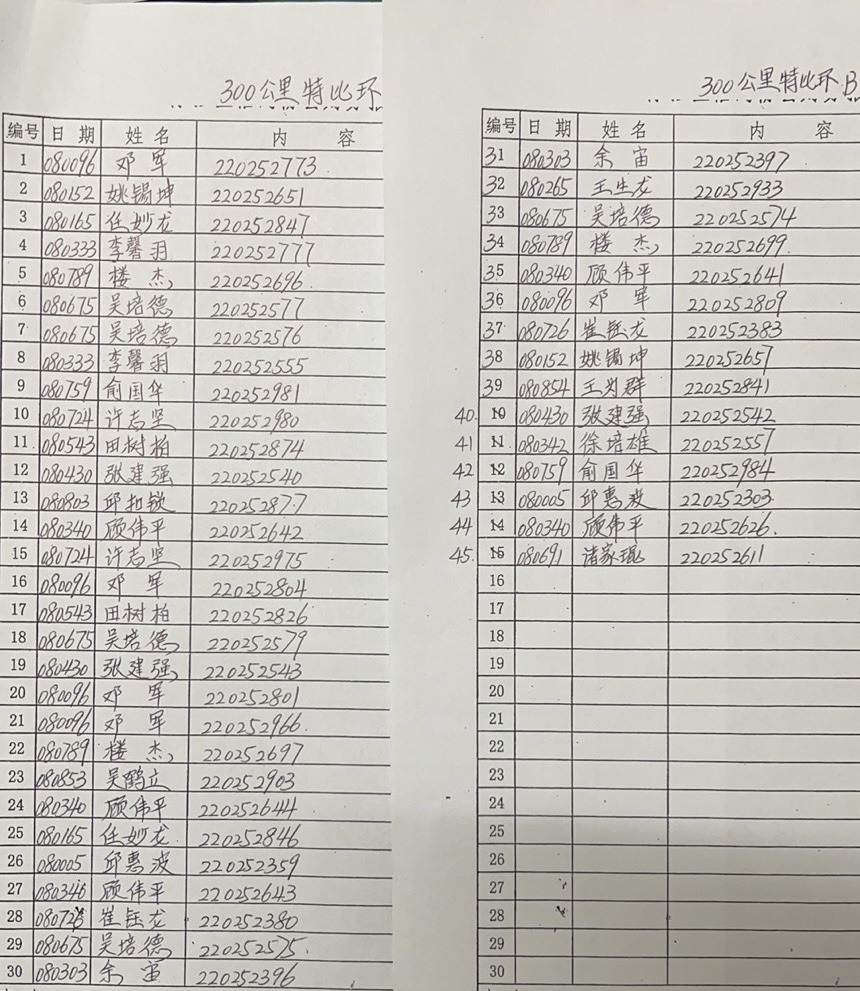 300公里特比环
编号 日期 姓名 内容
1 080096 邓军 220252773
2 080152 姚锡坤 220252651
3 080165 任妙龙 220252847
4 080333 李馨羽 220252777
5 080789 楼杰 220252696.
6 080675 吴培德 220252577
7 080675 吴培德 220252576
8 080333 李馨羽 220252555
9 080759 俞国华 220252981
10 080724 许志坚 220252980
11 080543 田树柏 220252874
12 080430 张建强 220252540
13 080803 邱扣锁 220252877
14 080340 顾伟平 220252642
15 080724 许志坚 220252975
16 080096 邓军 220252804
17 080543 田树柏 220252826
18 080675 吴培德 220252579
19 080430 张建强 220252543
20 080096 邓军 220252801
21 080096 邓军 220252966.
22 080789 楼杰 220252697
23 080853 吴鹤立 220252903
24 080340 顾伟平 220252644
25 080165 任妙龙 220252846
26 080005 邱惠波 220252359
27 080340 顾伟平 220252643
28 080726 崔钰龙 220252380
29 080675 吴培德 220252575.
30 080303 余宙 220252396
300公里特比环B
编号 日期 姓名 内容
31 080303 余宙 220252397
32 080265 王生龙 220252933
33 080675 吴培德 220252574
34 080789 楼杰 220252699.
35 080340 顾伟平 220252641
36 080096 邓军 220252809
37 080726 崔钰龙 220252383
38 080152 姚锡坤 220252657
39 080854 王为群 220252841
40. 10 080430 张建强 220252542
41 11 080342 徐培雄 220252557
42 12 080759 俞国华 220252984
43 13 080005 邱惠波 220252303.
44 14 080340 顾伟平 220252626.
45. 15 080691 诸家琨 220252611
16
17
18
19
20
21
22
23
24
25
26
27
28
29
30